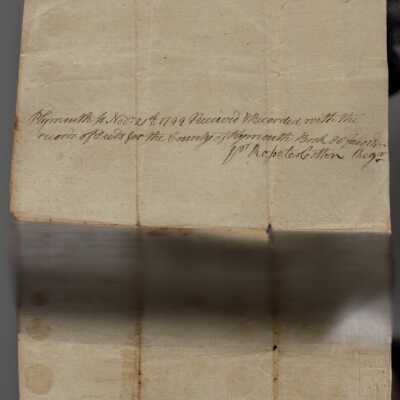 Plymouth ss Novr 21st 1749 Received & Recorded with the
records of Deeds for the County of Plymouth Book 40
pr Cotton Regr